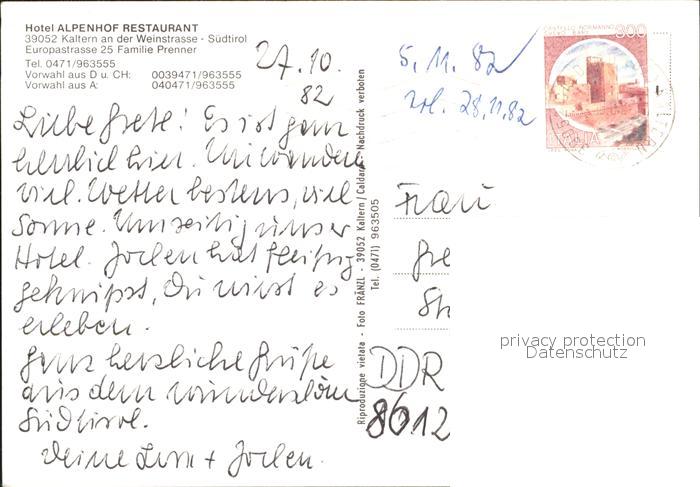 Hotel ALPENHOF RESTAURANT
39052 Kaltern an der Weinstrasse - Südtirol
Europastrasse 25 Familie Prenner
Tel. 0471/963555
Vorwahl aus D u. CH: 0039471/963555
Vorwahl aus A: 040471/963555
27.10.
82
Liebe Grete! Es ist ganz
herrlich hier. Wir wandern
viel. Wetter bestens, viel
Sonne. Umseitig unser
Hotel. Jochen hat fleißig
geknipst, Du wirst es
erleben.
Ganz herzliche Grüße
aus dem wunderschönen
Südtirol.
Deine + Jochen.
Riproduzione vietata - Foto FRÄNZL - 39052 Kaltern / Caldaro - Nachdruck verboten
Tel. (0471) 963505
5.11.82
28.11.82
CASTELLO NORMANNO
300
Frau
Gre
DDR
8612
privacy protection
Datenschutz